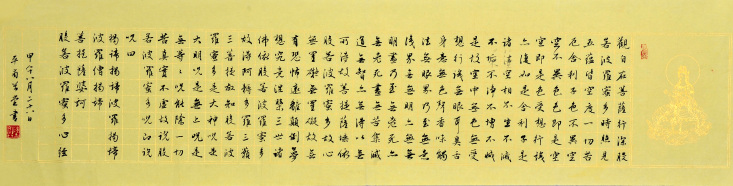 觀自在菩薩行深般
若波羅蜜多時照見
五蘊皆空度一切苦
厄舍利子色不異空
空不異色色即是空
空即是色受想行識
亦復如是舍利子是
諸法空相不生不滅
不垢不淨不增不減
是故空中無色無受
想行識無眼耳鼻舌
身意無色聲香味觸
法無眼界乃至無意
識界無無明亦無無
明盡乃至無老死亦
無老死盡無苦集滅
道無智亦無得以無
所得故菩提薩埵依
般若波羅蜜多故心
無罣礙無罣礙故無
有恐怖遠離顛倒夢
想究竟涅槃三世諸
佛依般若波羅蜜多
故得阿耨多羅三藐
三菩提故知般若波
羅蜜多是大神咒是
大明咒是無上咒是
無等々咒能除一切
苦真實不虛故說般
若波羅蜜多咒即說
咒曰
揭諦揭諦波羅揭諦
波羅僧揭諦
菩提薩婆訶
般若波羅蜜多心經
甲午八月二六日
書